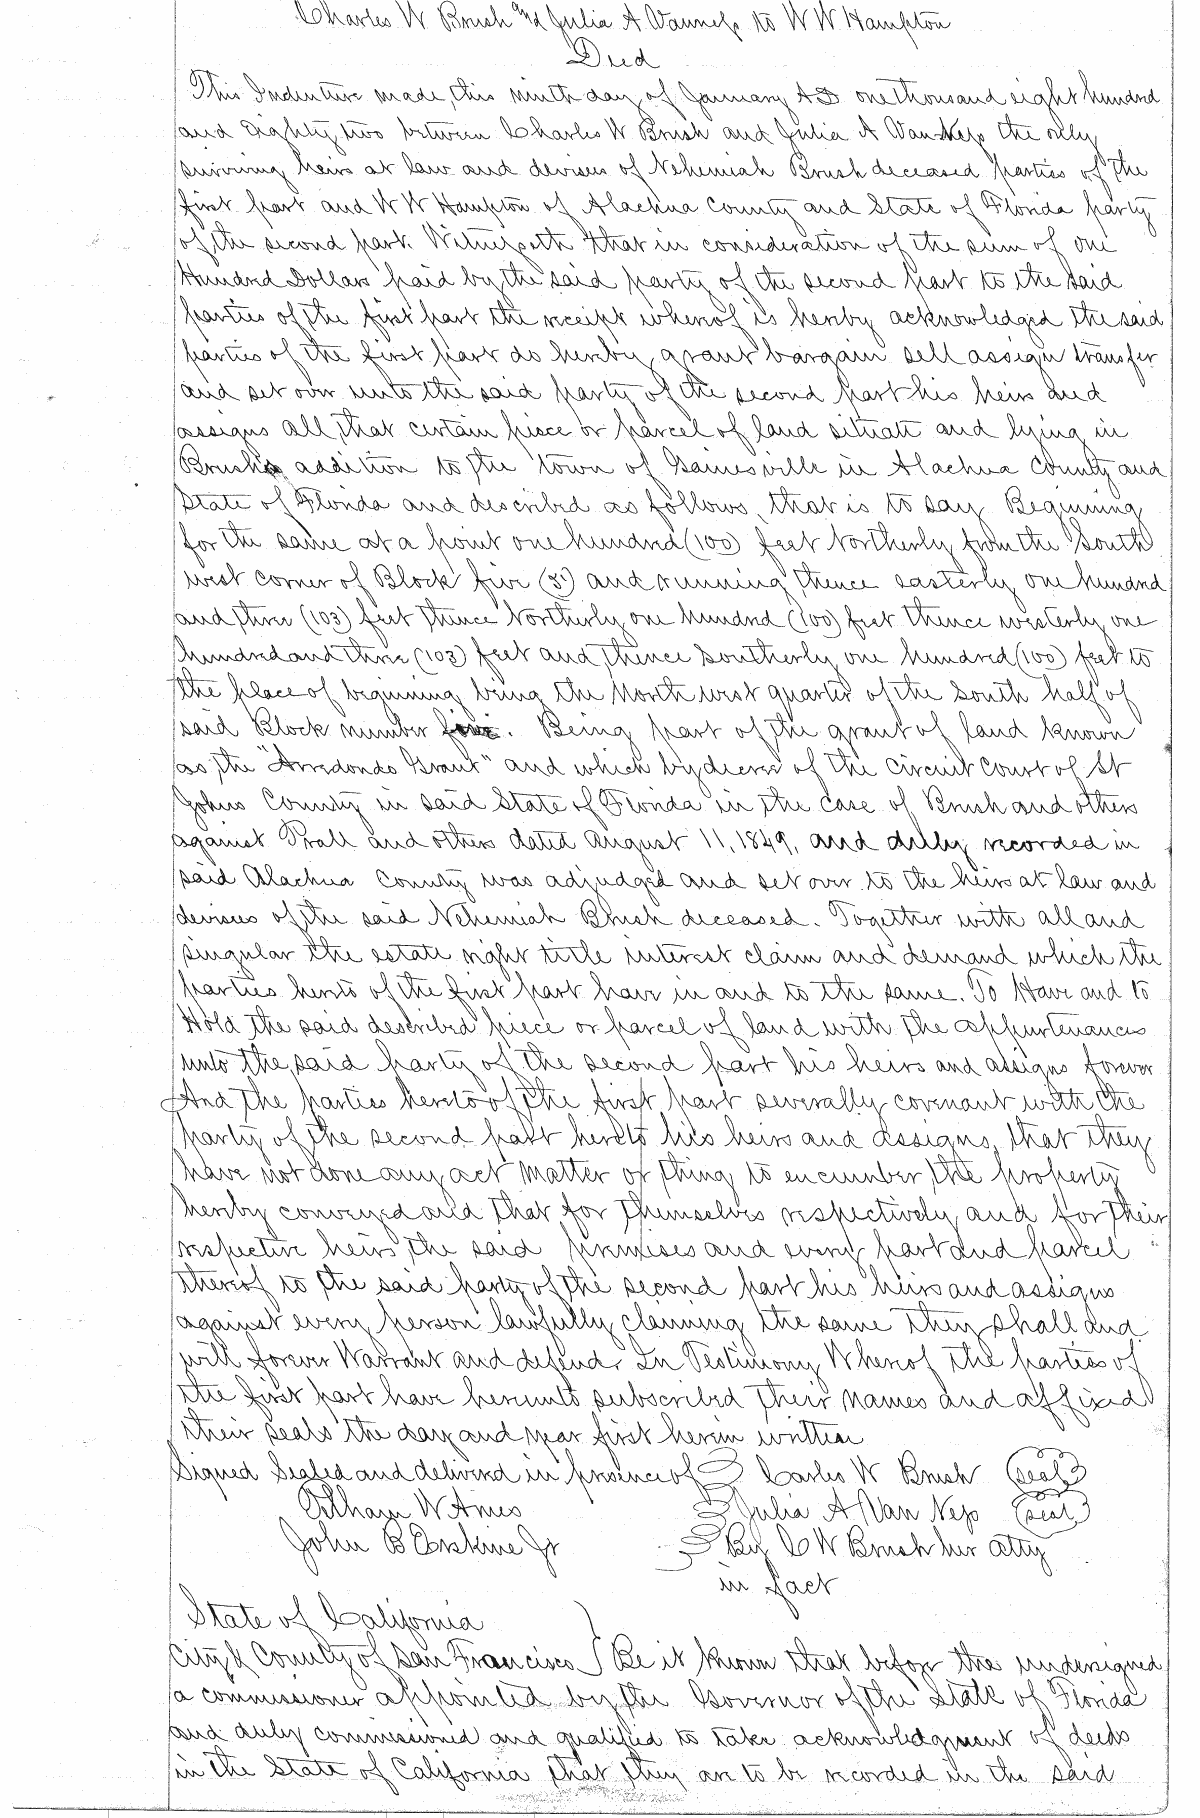 Charles W Brush and Julia A Vanness to W W Hampton
Deed
This Indenture made this ninth day of January AD one thousand eight hundred
and Eighty two between Charles W Brush and Julia A Van Ness the only
surviving heirs at law and devisees of Nehemiah Brush deceased parties of the
first part and W W Hampton of Alachua County and State of Florida party
of the second part. Witnesseth that in consideration of the sum of one
Hundred Dollars paid by the said party of the second part to the said
parties of the first part the receipt whereof is hereby acknowledged the said
parties of the first part do hereby grant bargain sell assign transfer
and set over unto the said party of the second part his heirs and
assigns all that certain piece or parcel of land situate and lying in
Brush's addition to the town of Gainesville in Alachua County and
State of Florida and described as follows, that is to say Beginning
for the same at a point one hundred (100) feet Northerly from the South
west corner of Block five (5) and running thence easterly one hundred
and three (103) feet thence Northerly one hundred (100) feet thence westerly one
hundred and three (103) feet and thence Southerly one hundred (100) feet to
the place of beginning being the North west quarter of the South half of
said Block number five. Being part of the grant of land known
as the "Arredondo Grant" and which by decree of the Circuit Court of St
Johns County in said State of Florida in the case of Brush and others
against Prall and others dated August 11, 1849, and dully recorded in
said Alachua County was adjudged and set over to the heirs at law and
devisees of the said Nehemiah Brush deceased. Together with all and
singular the estate right title interest claim and demand which the
parties hereto of the first part have in and to the same. To Have and to
Hold the said described piece or parcel of land with the appurtenances
unto the said party of the second part his heirs and assigns forever
And the parties hereto of the first part severally covenant with the
party of the second part hereto his heirs and assigns, that they
have not done any act matter or thing to encumber the property
hereby conveyed and that for themselves respectively and for their
respective heirs, the said premises and every part and parcel
thereof to the said party of the second part his heirs and assigns
against every person lawfully claiming the same they shall and
will forever Warrant and defend. In Testimony Whereof the parties of
the first part have hereunto subscribed their names and affixed
their seals the day and year first herein written
Signed Sealed and delivered in presence of Carles W Brush (seal)
W Ames Julia A Van Ness (seal)
John B Erskine Jr By C W Brush her atty
in fact
State of California
City & County of San Francisco } Be it known that before the undersigned
a commissioner appointed by the Governor of the State of Florida
and duly commissioned and qualified to take acknowledgment of deeds
in the State of California that they are to be recorded in the said